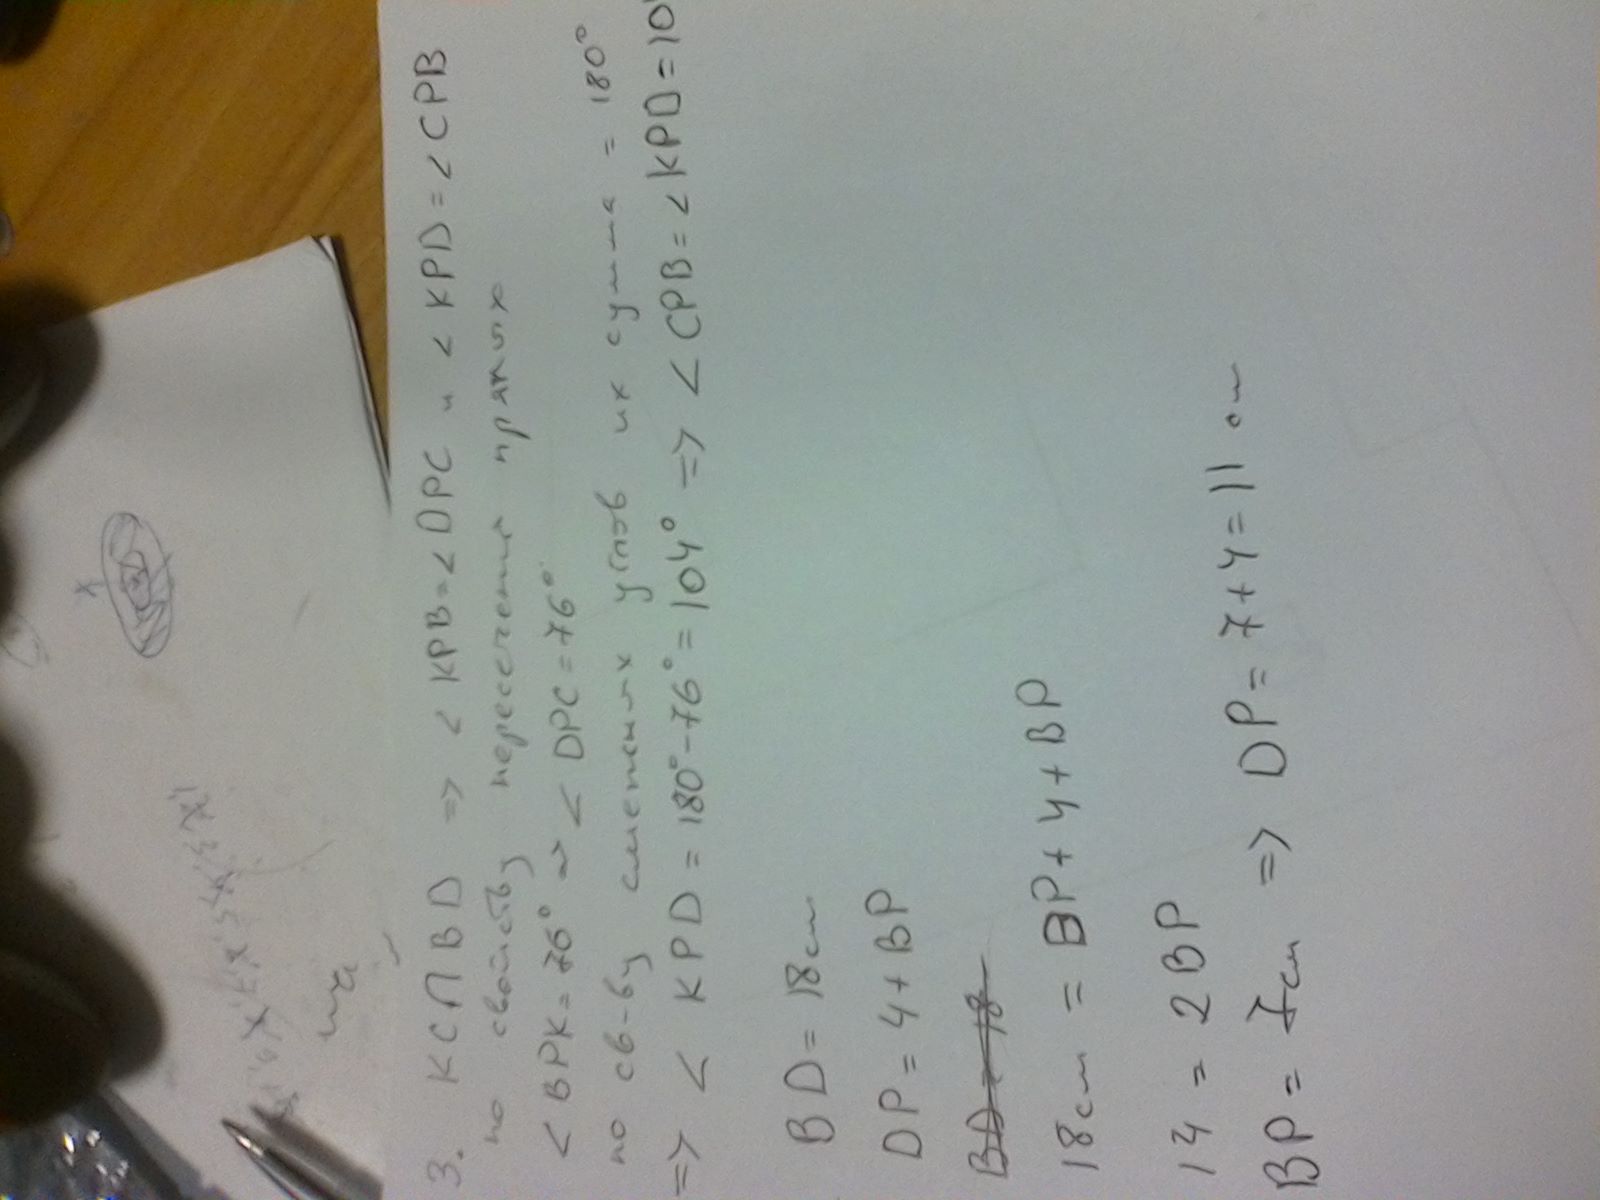 3. KC∩BD => < KPB = < DPC и < KPD = < CPB
по свойству пересечения прямых
< BPK = 76° => < DPC = 76°
по св-ву смежных углов их сумма = 180°
=> < KPD = 180° - 76° = 104° => < CPB = < KPD = 10
BD = 18 см
DP = 4 + BP
18 см = BP + 4 + BP
14 = 2BP
BP = 7 см => DP = 7 + 4 = 11 см